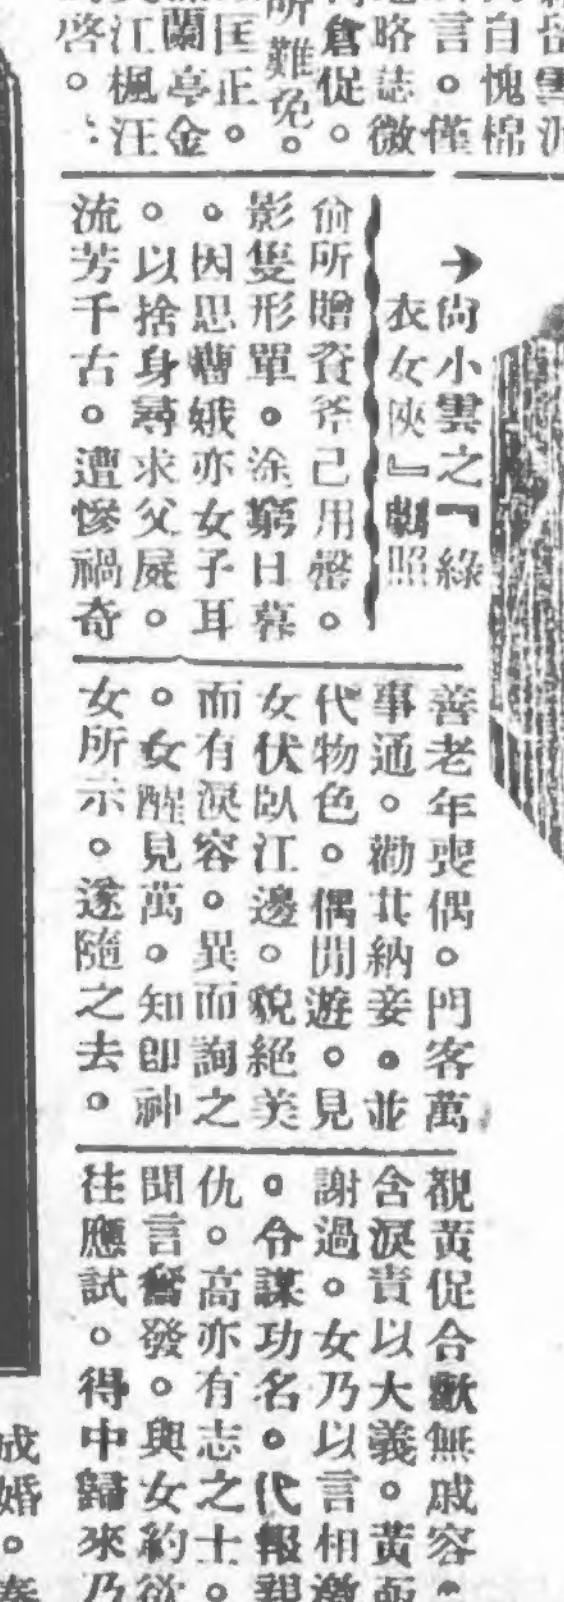 自愧棉
言。僅
略誌微
倉促。
所難免。
匡正。
蘭亭金
江楓汪
啓。
→尙小雲之『綠
衣女俠』劇照
俞所贈資斧已用罄。
影隻形單。涂窮日暮
。因思曹娥亦女子耳
。以捨身尋求父屍。
流芳千古。遭慘禍奇
善老年喪偶。門客萬
事通。勸其納妾。並
代物色。偶閒遊。見
女伏臥江邊。貌絕美
而有淚容。異而詢之
。女醒見萬。知卽神
女所示。遂隨之去。
覩黃促合歡無戚容。
含淚責以大義。黃亟
謝過。女乃以言相激
。令謀功名。代報親
仇。高亦有志之士。
聞言奮發。與女約欲
往應試。得中歸來乃
成婚。